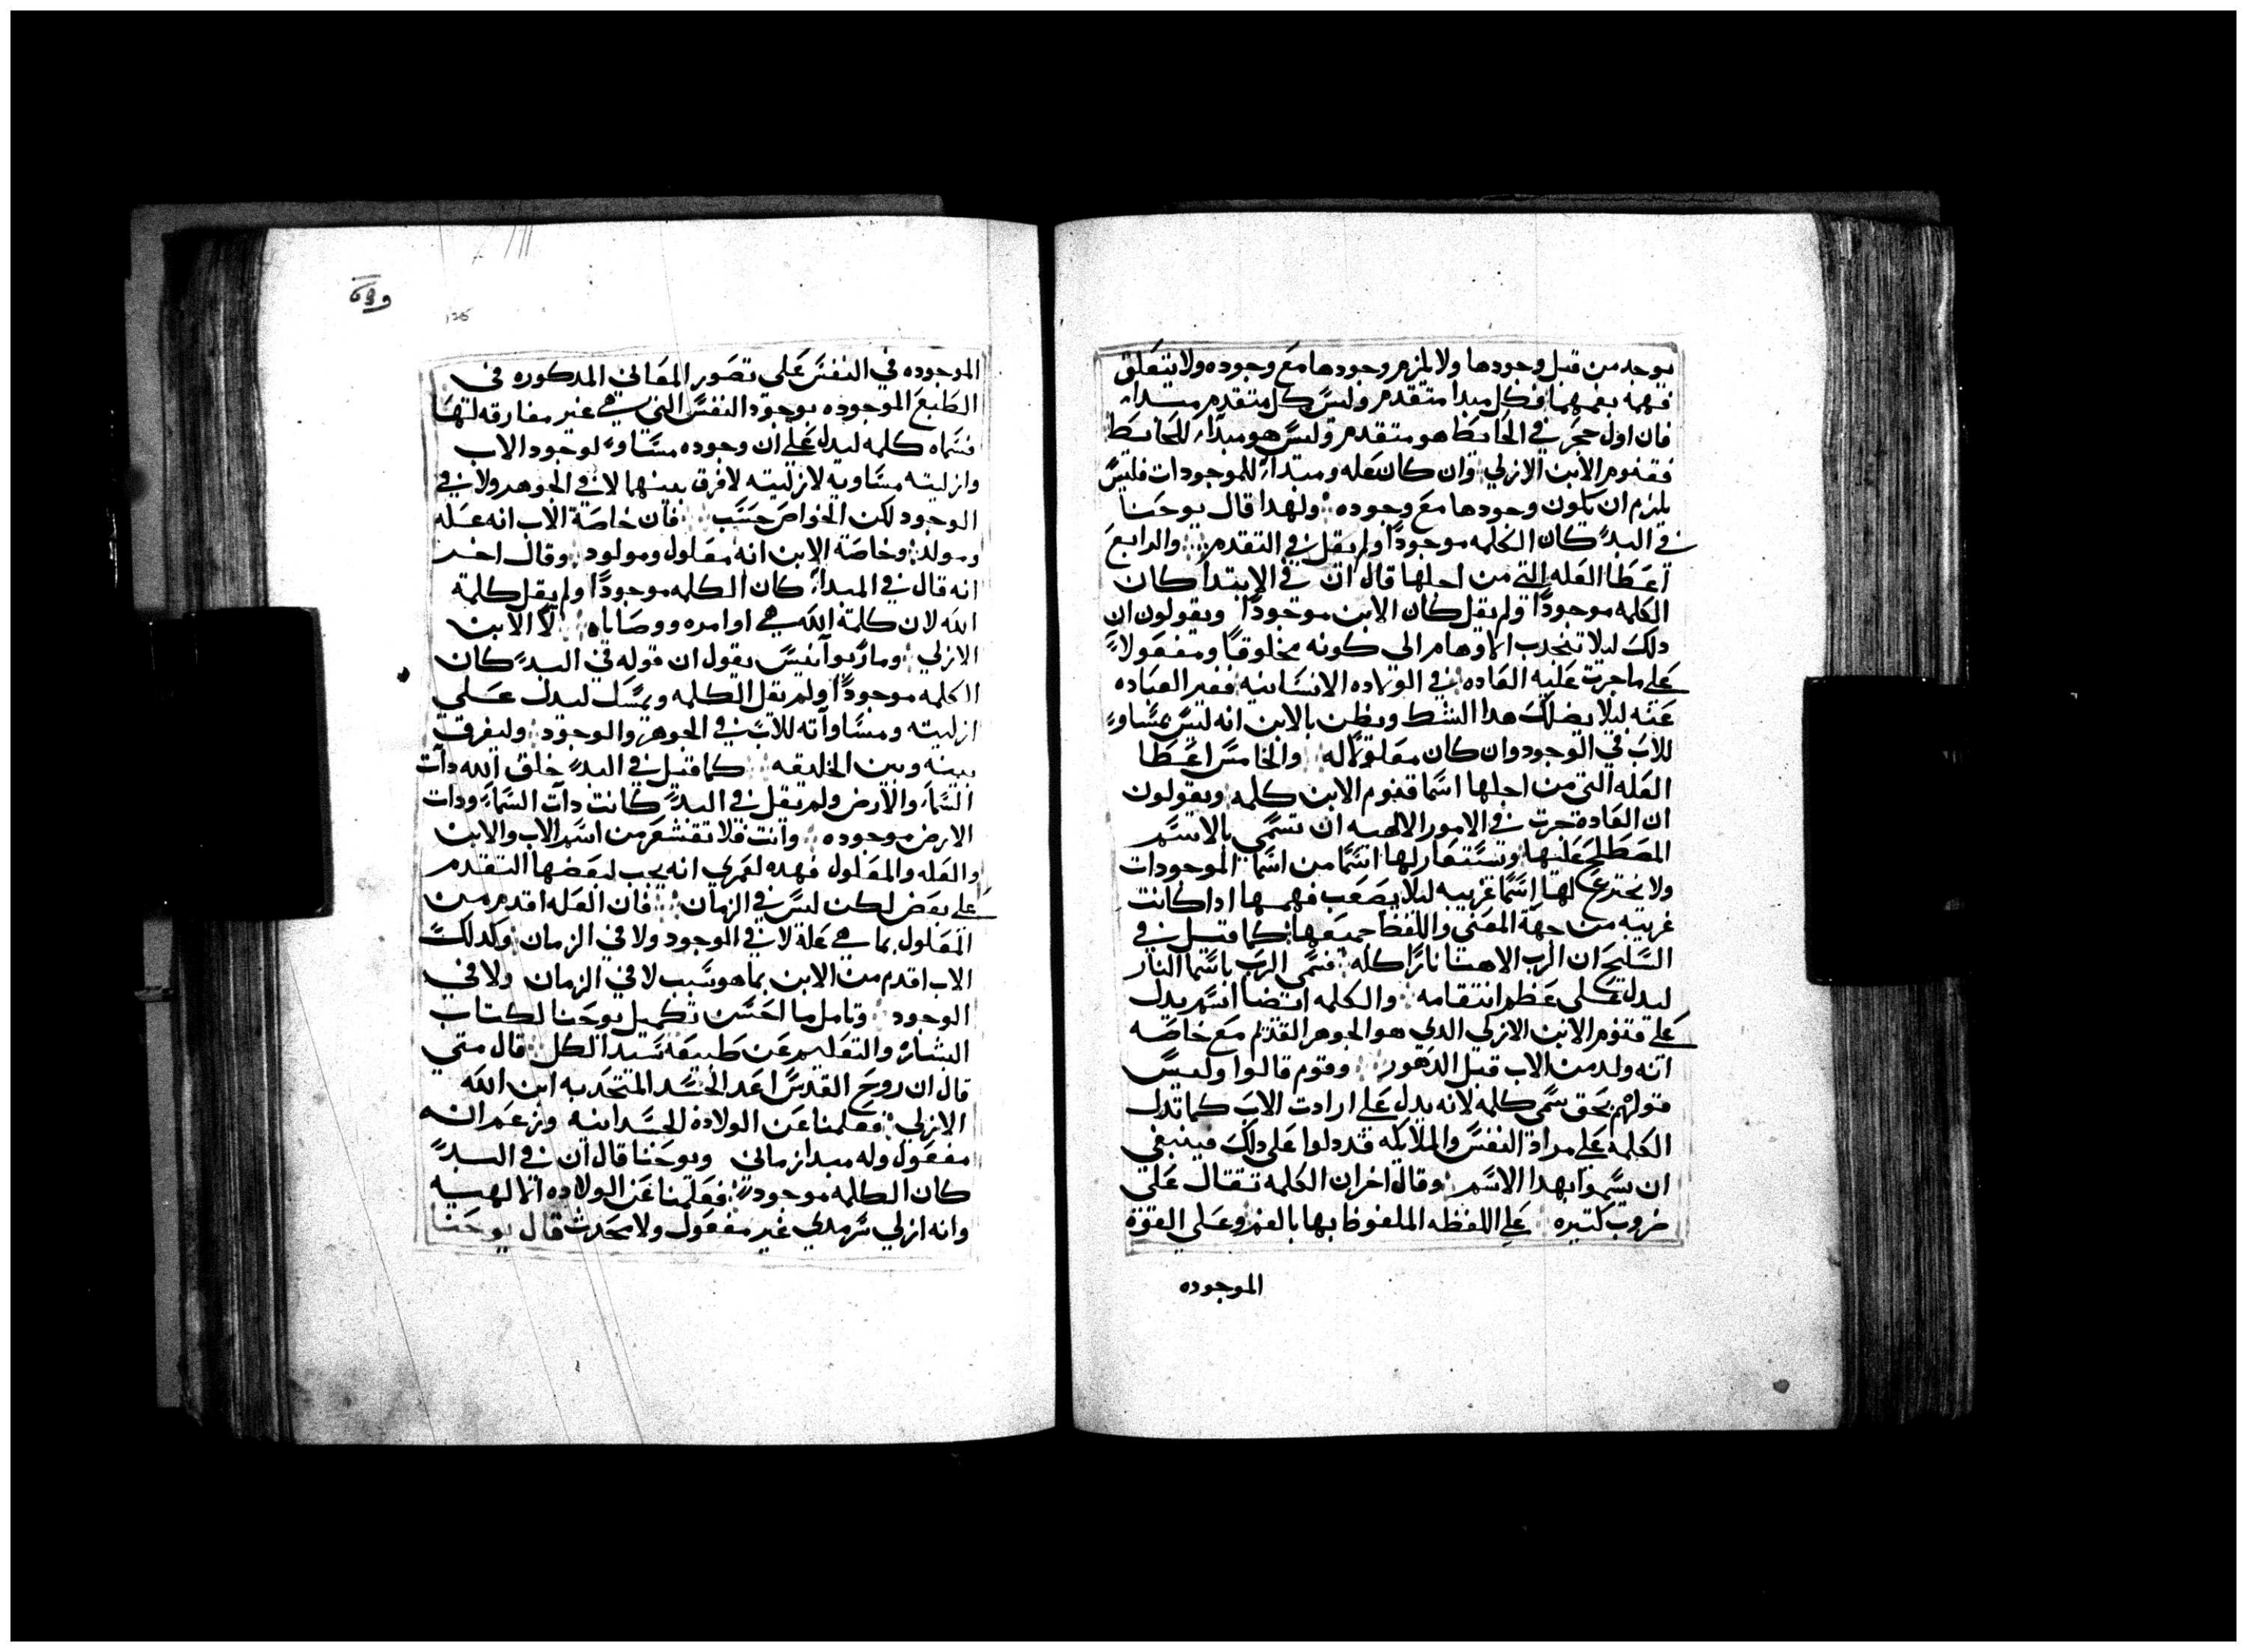 يوجد من قبل وجودها ولا يلزم وجودها مع وجوده ولا يتعلق
فهمه بفهمها فكل مبدا متقدم وليس كل متقدم مبداء
فان اول حجر في الحايط هو متقدم وليس هو مبداء للحايط
فقنوم الابن الازلي وان كان عله ومبتداء للموجودات فليس
يلزم ان يكون وجودها مع وجوده ولهدا قال يوحنا
في البدء كان الكلمه موجودًا ولم يقل في التقدم والرابع
اعطا العله التي من اجلها قال ان في الابتدا كان
الكلمه موجودًا ولم يقل كان الابن موجودًا ويقولون ان
دلك ليلا تنجدب الاوهام الى كونه مخلوقًا ومفعولاً
على ما جرت عليه العاده في الولاده الانسانيه فغير العباده
عنه ليلا يضلك هدا الشك ويظن بالابن انه ليس بمساوٍ
للاب في الوجود وان كان معلولاً له والخامس اعطا
العله التي من اجلها اسما قنوم الابن كلمه ويقولون
ان العاده جرت في الامور الالهيه ان تسمي بالاسم
المصطلح عليها وتستعار لها اسمًا من اسما الموجودات
ولا نخترع لها اسمًا غريبه ليلا يصعب فهمها ادا كانت
غريبه من جهة المعنى واللفظ جميعها كما قيل في
السليح ان الرب الاهنا نارًا كله فسمى الرب باسما النار
ليدل على عظم انتقامه والكلمه ايضا اسم يدل
على قنوم الابن الازلي الدي هو الجوهر القديم مع خاصه
انه ولد من الاب قبل الدهور وقوم قالوا وليس
قولهم بحق سمى كلمه لانه يدل على ارادت الاب كما تدل
الكلمه على مراد النفس والملايكه قد دلوا على دلك فينبغي
ان يسموا بهدا الاسم وقال اخر ان الكلمه تقال على
ضروب كتيره على اللفظه الملفوظ بها بالفم وعلى القوه
الموجوده
الموجوده في النفس على تصور المعاني المدكوره في
الطبع الموجوده بوجود النفس التي هي غير مفارقه لتها
فسماه كلمه ليدل على ان وجوده مساوٍ لوجود الاب
وازليته مساويه لازليته لا فرق بينهما لا في الجوهر ولا في
الوجود لكن الخواص حسب فان خاصة الاب انه عله
ومولد وخاصة الابن انه معلول ومولود وقال اخر
انه قال في المبداء كان الكلمه موجودًا ولم يقل كلمة
الله لان كلمة الله هي اوامره ووصاياه لا الابن
الازلي وماربوانيس يقول ان قوله في البدء كان
الكلمه موجودًا ولم يقل الكلمه ويمسك ليدل على
ازليته ومساواته للاب في الجوهر والوجود وليفرق
بينه وبين الخليقه كما قيل في البدء خلق الله دات
السماء والارض ولم يقل في البدء كانت دات السماء ودات
الارض موجوده وانت فلا تقشعر من اسم الاب والابن
والعله والمعلول فهده لعمري انه يجب لبعضها التقدم
على بعض لكن ليس في الزمان فان العله اقدم من
المعلول بما هي علة لا في الوجود ولا في الزمان وكدلك
الاب اقدم من الابن بما هو سبب لا في الزمان ولا في
الوجود وتامل ما احسن تكميل يوحنا لكتاب
البشاره والتعليم عن طبيعه سيد الكل قال متي
قال ان روح القدس اعد الجسد المتحد به ابن الله
الازلي فعلمنا عن الولادة الجسدانيه وزعم انه
مفعول وله مبدا زماني ويوحنا قال ان في البدء
كان الكلمه موجودًا فعلمنا عن الولاده الالهيه
وانه ازلي سرمدي غير مفعول ولا محدث قال يوحنا